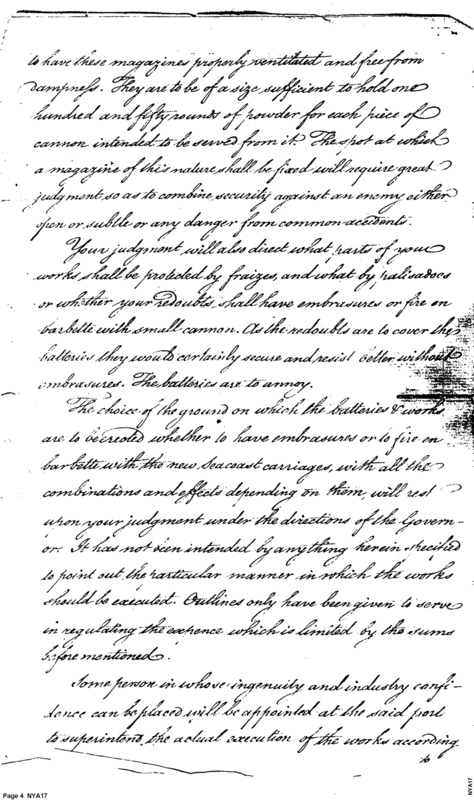 to have these magazines properly ventilated and free from
dampness. They are to be of a size sufficient to hold one
hundred and fifty rounds of powder for each piece of
cannon intended to be served from it. The spot at which
a magazine of this nature shall be fixed will require great
judgment so as to combine security against an enemy either
open or subtle or any danger from common accidents.
Your judgment will also direct what parts of your
works shall be protected by fraizes, and what by palisadoes
or whether your redoubts, shall have embrasures or fire en
barbette with small cannon. As the redoubts are to cover the
batteries they would certainly secure and resist better without
embrasures. The batteries are to annoy.
The choice of the ground on which the batteries & works
are to be erected whether to have embrasures or to fire en
barbette with the new seacoast carriages, with all the
combinations and effects depending on them, will rest
upon your judgment under the directions of the Govern-
or. It has not been intended by anything herein specified
to point out the particular manner in which the works
should be executed. Outlines only have been given to serve
in regulating the expence which is limited by the sums
before mentioned.
Some person in whose ingenuity and industry confi-
dence can be placed will be appointed at the said port
to superintend, the actual execution of the works according
to
Page 4 NYA17
NYA17